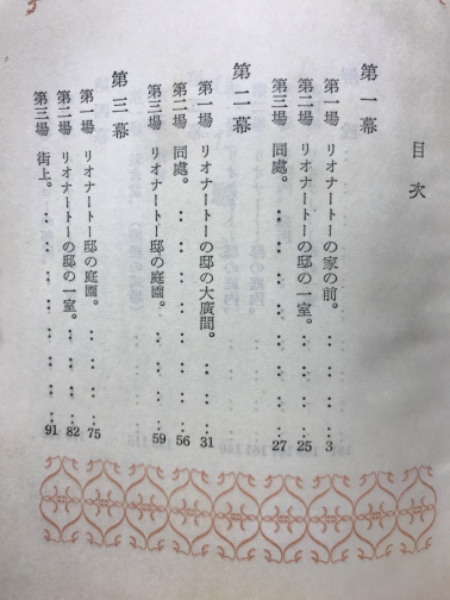 目次
第一幕
第一場 リオナートーの家の前。‥‥‥‥3
第二場 リオナートー邸の一室。‥‥‥‥25
第三場 同處。‥‥‥‥‥‥‥‥27
第二幕
第一場 リオナートーの邸の大廣間。‥‥‥‥31
第二場 同處。‥‥‥‥‥‥‥‥56
第三場 リオナートー邸の庭園。‥‥‥‥59
第三幕
第一場 リオナートー邸の庭園。‥‥‥‥75
第二場 リオナートーの邸の一室。‥‥‥‥82
第三場 街上。‥‥‥‥‥‥‥‥91